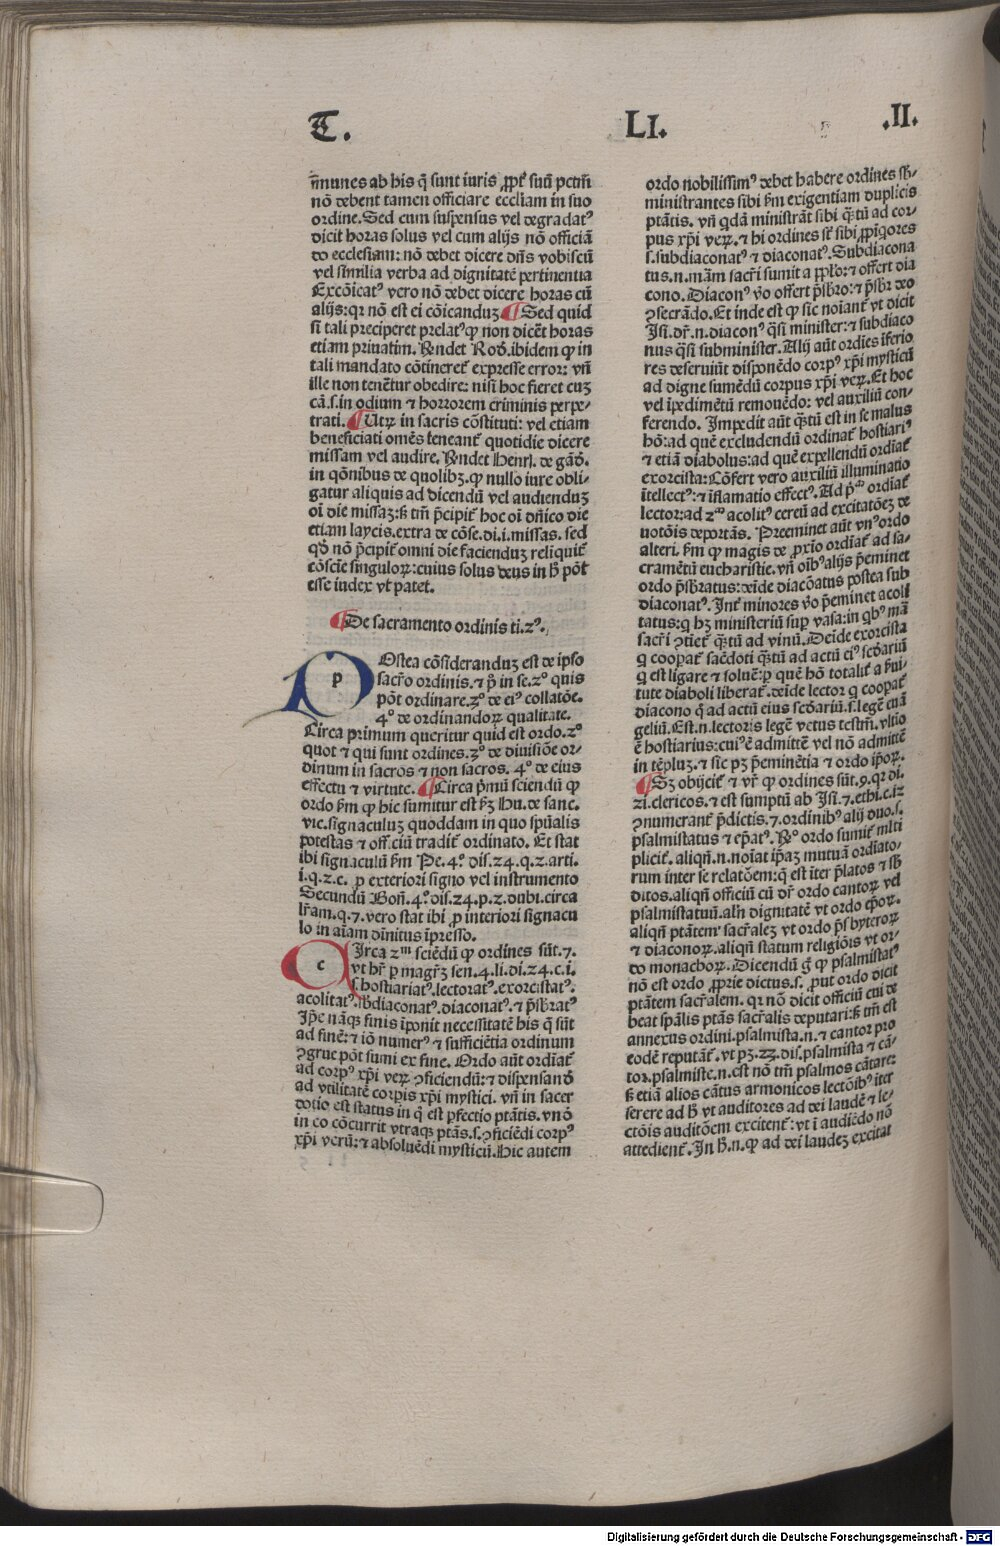 T. LI. .II.
m̄munes ab his q̄ sunt iuris ꝓpt̉ suū pctm̄
nō debent tamen officiare eccl̄iam in suo
ordine. Sed cum suspensus vel degradatꝰ
dicit horas solus vel cum alijs nō officiā
do ecclesiam: nō debet dicere dn̄s vobiscū
vel similia verba ad dignitatē pertinentia
Excōicatꝰ vero nō debet dicere horas cū
alijs: qꝛ nō est ei cōicanduꝫ ¶ Sed quid
si tali preciperet prelatꝰ ꝙ non dicēt horas
etiam priuatim. Rn̄det Rod. ibidem ꝙ in
tali mandato cōtineret̉ expresse error: vn̄
ille non tenēt̉ur obedire: nisi hoc fieret cuꝫ
cā. s. in odium ⁊ horrorem criminis perpe-
trati. ¶ Utꝝ in sacris cōstituti: vel etiam
beneficiati omēs teneant̉ quotidie dicere
missam vel audire. Rn̄det Henri. de gād.
in qōnibus de quolibꝫ. ꝙ nullo iure obli-
gatur aliquis ad dicendū vel audienduꝫ
oī die missaꝫ: ß tm̄ p̄cipit̉ hoc oī dn̄ico die
etiam laycis. extra de cōse. di. i. missas. sed
qd̓ nō p̄cipit̉ omni die facienduꝫ reliquit̉
cōscīe singuloꝝ: cuius solus deus in ħ pōt
esse iudex vt patet.
¶ De sacramento ordinis ti. 2ꝰ.
p
Ostea cōsideranduꝫ est de ipso
sacr̄o ordinis. ⁊ p̄ in se. 2º quis
pōt ordinare. 3º de eiꝰ collatōe.
4º de ordinandoꝝ qualitate.
Circa primum queritur quid est ordo. 2º
quot ⁊ qui sunt ordines. 3º de diuisiōe or-
dinum in sacros ⁊ non sacros. 4º de eius
effectu ⁊ virtute. ¶ Circa p̄mū sciendū ꝙ
ordo s̄m ꝙ hic sumitur est s̄ꝫ Hu. de sanc.
vic. signaculuꝫ quoddam in quo spūalis
potestas ⁊ officiū tradit̉ ordinato. Et stat
ibi signaculū s̄m Pe. 4º. dis. 24. q. 2. arti.
i. q. 2. c. ꝓ exteriori signo vel instrumento
Secundū Bon̄. 4º. dis. 24. p. 2. dubi. circa
lr̄am. q. 7. vero stat ibi ꝓ interiori signacu
lo in aīam diuinitus īpresso.
c
Irca 2m sciēdū ꝙ ordines sūt. 7.
vt hr̄ p magr̄ꝫ sen. 4. li. di. 24. c. i.
s. hostiariatꝰ. lectoratꝰ. exorcistatꝰ.
acolitatꝰ. s̓bdiaconatꝰ. diaconatꝰ. ⁊ p̄sbratꝰ
Ip̄e nāqꝫ finis īponit necessitatē his q̄ sūt
ad finē: ⁊ iō numerꝰ ⁊ sufficiētia ordinum
ꝯgrue pōt sumi ex fine. Ordo aūt ordīat̉
ad corpꝰ xp̄i veꝝ ꝯficiendū: ⁊ dispensand̓
ad vtilitatē corpis xp̄i mystici. vn̄ in sacer
dotio est status in q̄ est ꝑfectio ptātis. vnō
in eo cōcurrit vtraqꝫ ptās. s. ꝯficiēdi corpꝰ
xp̄i verū: ⁊ absoluēdi mysticū. Hic autem
ordo nobilissimꝰ debet habere ordines sb̓-
ministrantes sibi s̄m exigentiam duplicis
ptātis. vn̄ qdā ministrāt sibi q̄tū ad cor-
pus xp̄i veꝝ. ⁊ hi ordines sūt sibi ꝓpīqores
s. subdiaconatꝰ ⁊ diaconatꝰ. Subdiacona
tus. n. mām sacr̄i sumit a ꝓplo: ⁊ offert dia
cono. Diaconꝰ v̓o offert p̄sbr̄o: ⁊ p̄sbr̄ deo
ꝯsecrādo. Et inde est ꝙ sic noīant̉ vt dicit
Isi. dr̄. n. diaconꝰ q̄si minister: ⁊ subdiaco
nus q̄si subminister. Alij aūt ordīes īferio
res deseruiūt disponēdo corpꝰ xp̄i mysticū
ad digne sumēdū corpus xp̄i veꝝ. Et hoc
vel īpedimētū remouēdo: vel auxiliū con-
ferendo. Impedit aūt q̄tū est in se malus
hō: ad quē excludendū ordinat̉ hostiariꝰ
⁊ etiā diabolus: ad quē expellendū ordīat̉
exorcista: Cōfert vero auxiliū illuminatio
ītellectꝰ: ⁊ īflamatio effectꝰ. Ad p̄m ordīat̉
lector: ad 2m acolitꝰ cereū ad excitatōeꝫ de
uotōis deportās. Preeminet aūt vnꝰ ordo
alteri. s̄m ꝙ magis de ꝓxīo ordīat̉ ad sa-
cramētū eucharistie. vn̄ oīb̓ alijs p̄eminet
ordo p̄sbratus: deīde diacōatus postea sub
diaconatꝰ. Int̉ minores v̓o p̄eminet acoli
tatus: q hꝫ ministeriū suꝑ vasa: in qb̓ mā
sacr̄i ꝯtinet̉ q̄tū ad vinū. Deide exorcista
q coopat̉ sac̄doti q̄tū ad actū eiꝰ scd̓ariū
q̄ est ligare ⁊ soluere: ꝑ quē hō totalit̉ a s̓ui-
tute diaboli liberat̉. deīde lector q̄ coopat̉
diacono q̄ ad actū eius scd̓ariū. s. legē euā
geliū. Est. n. lectoris legē vetus testm̄. vltīo
ē hostiarius: cuiꝰ ē admittē vel nō admittē
in tēpluꝫ. ⁊ sic pꝫ p̄eminētia ⁊ ordo ip̄oꝝ.
¶ Sꝫ obijcit̉ ⁊ vr̄ ꝙ ordines sūt. 9. qꝛ di.
21. clericos. ⁊ est sumptū ab Isi. 7. ethi. c. 12
ꝯnumerant̉ p̄dictis. 7. ordinibꝰ alij duo. s.
psalmistatus ⁊ ep̄atꝰ. Rº ordo sumit̉ ml̓ti
plicit̉. aliqn̄. n. noīat ip̄aꝫ mutuā ordīato-
rum inter se relatōem: q̄ est īter p̄latos ⁊ sb̓
ditos. aliqn̄ officiū cū dr̄ ordo cantoꝝ vel
psalmistatuū. aln̄ dignitatē vt ordo ep̄oꝝ.
aliqn̄ ptātem sacr̄aleꝫ vt ordo p̄sbyteroꝝ
⁊ diaconoꝝ. aliqn̄ statum religiōis vt or-
do monachoꝝ. Dicendū g̊ ꝙ psalmistatꝰ
nō est ordo ꝓprie dictus. s. ꝓut ordo dicit
ptātem sacr̄alem. qꝛ nō dicit officiū cui de
beat spālis ptās sacr̄alis deputari: ß tm̄ est
annexus ordini. psalmista. n. ⁊ cantor pro
eodē reputāt̉. vt pꝫ. 23. dis. psalmista ⁊ cā-
tor. psalmiste. n. est nō tm̄ psalmos cātare:
ß etiā alios cātus armonicos lectōib̓ īter
serere ad ħ vt auditores ad dei laudē ⁊ le-
ctōis auditōem excitent̉: vt ī audiēdo nō
attedient̉. In ħ. n. ꝙ ad dei laudeꝫ excitat
Digitalisierung gefördert durch die Deutsche Forschungsgemeinschaft - DFG